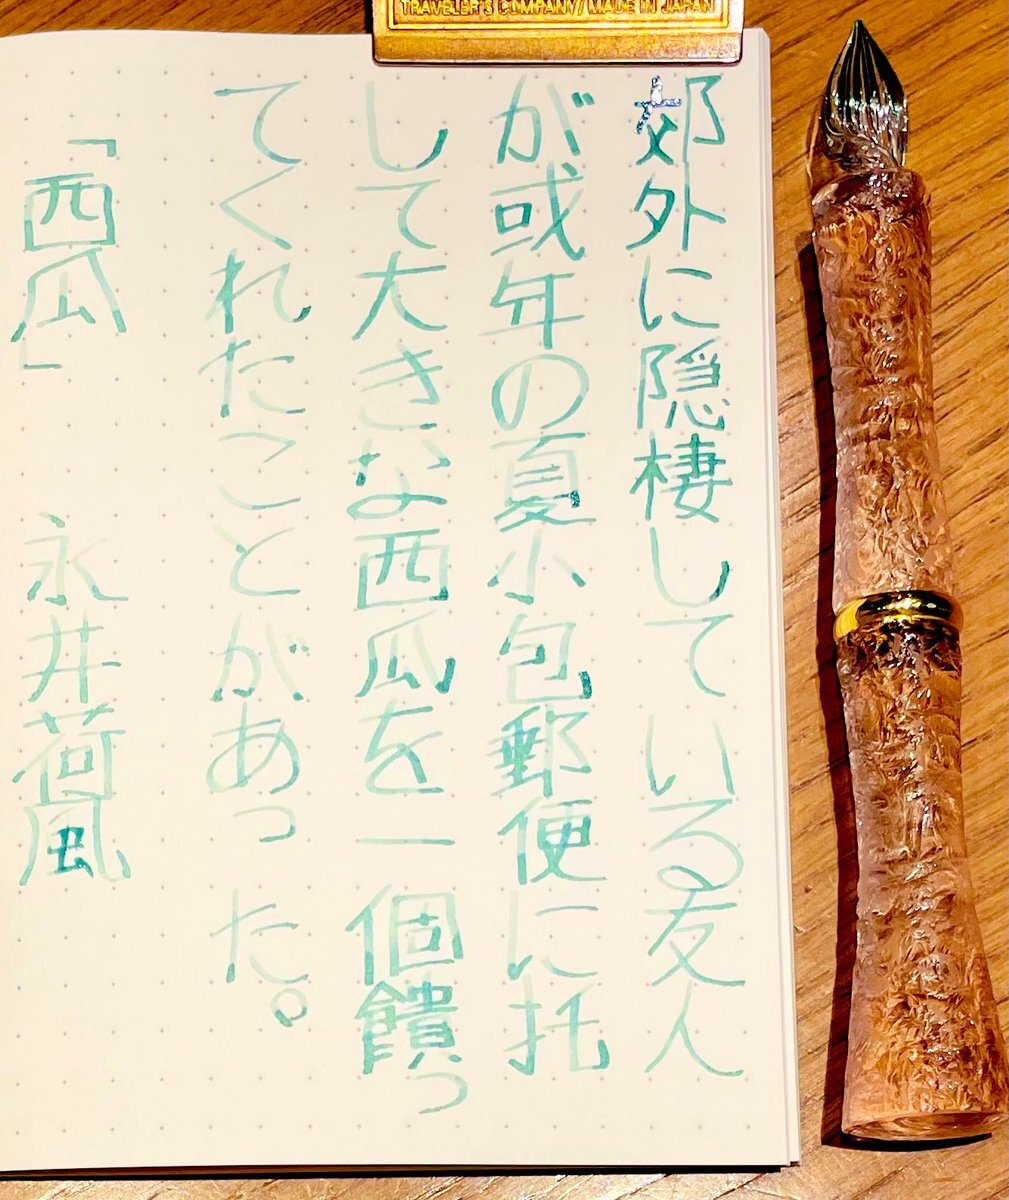 TRAVELER'S COMPANY / MADE IN JAPAN
郊外に隠棲している友人
が或年の夏小包郵便に托
して大きな西瓜を一個饋っ
てくれたことがあった。
「西瓜」 永井荷風